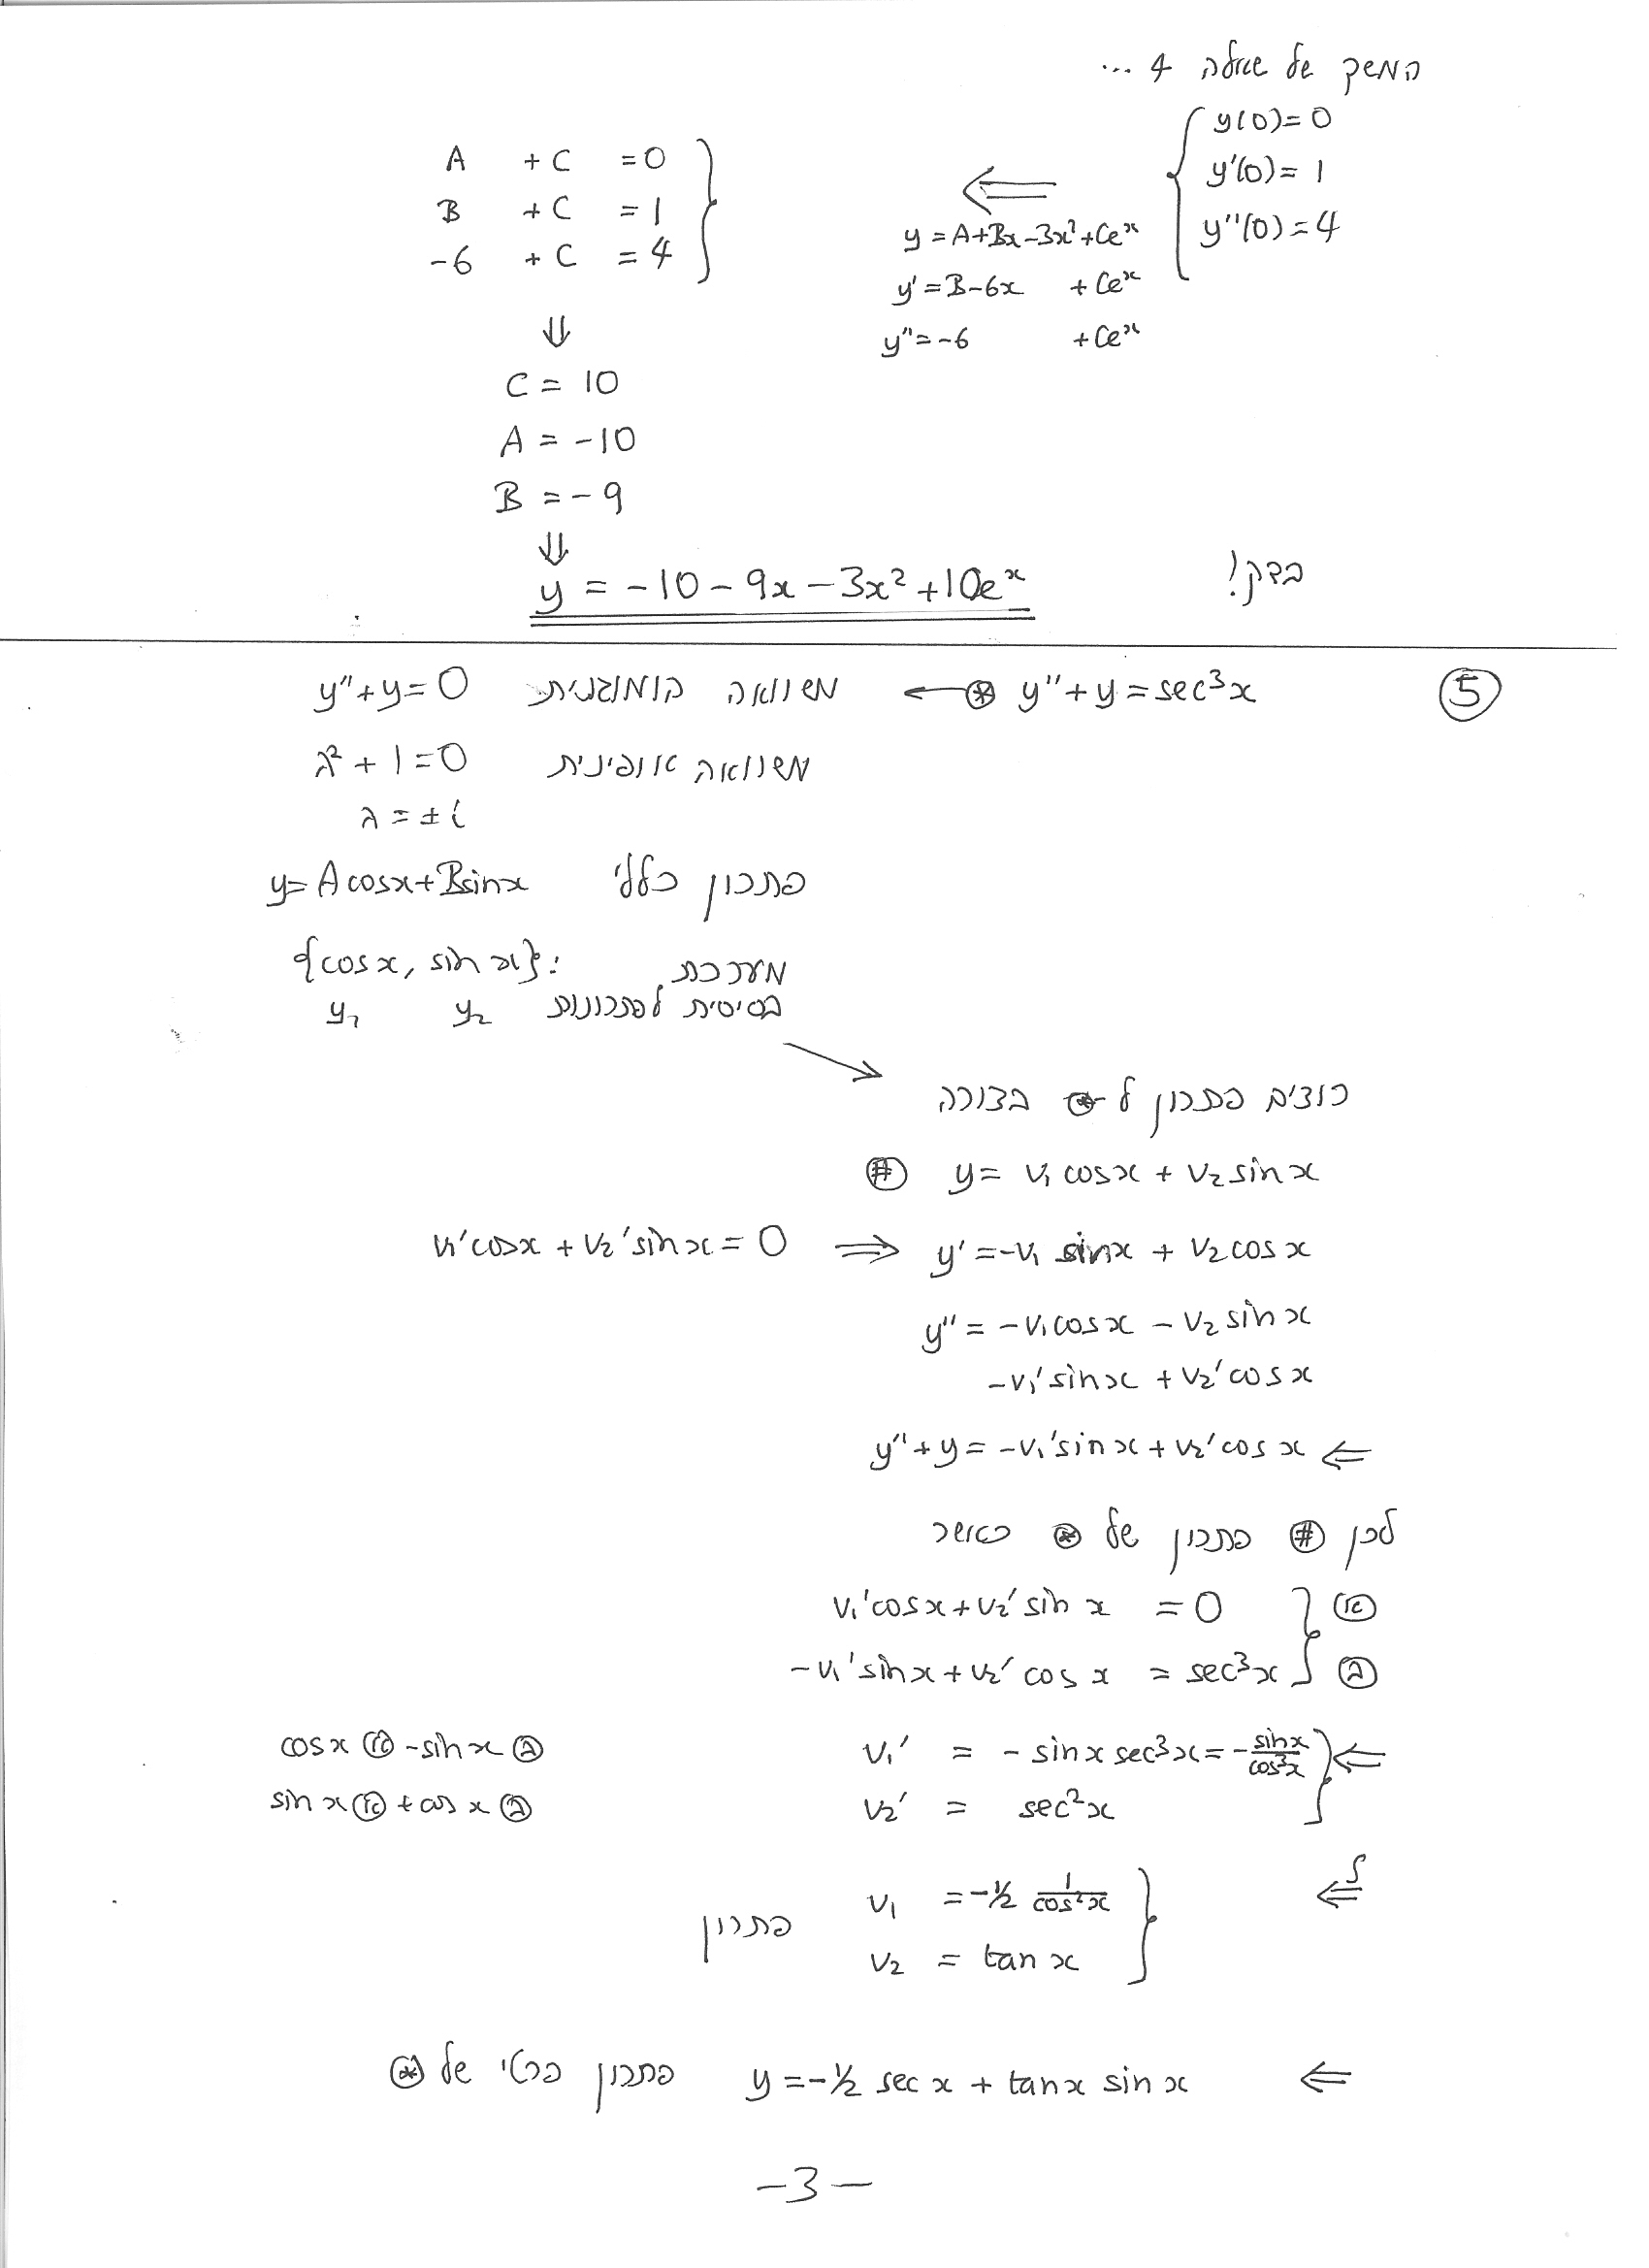 המשך של שאלה 4 ...
y(0)=0
y'(0)=1
y''(0)=4
⇐
y=A+Bx-3x²+Ceˣ
y'=B-6x +Ceˣ
y''=-6 +Ceˣ
A +C =0
B +C =1
-6 +C =4
⇓
C = 10
A = -10
B = -9
⇓
y = -10-9x-3x²+10eˣ בדק!
⑤ y''+y=sec³x ⊛ ← משוואה הומוגנית y''+y=0
משוואה אופינית λ²+1=0
λ=±i
פתרון כללי y=Acosx+Bsinx
מערכת {cosx, sinx}:
בסיסית לפתרונות y₁ y₂
רוצים פתרון ל ⊛ בצורה
(#) y= v₁cosx+v₂sinx
v₁'cosx+v₂'sinx=0 ⇒ y'=-v₁sinx+v₂cosx
y''=-v₁cosx-v₂sinx
-v₁'sinx+v₂'cosx
y''+y=-v₁'sinx+v₂'cosx ⇐
לכן (#) פתרון של ⊛ כאשר
v₁'cosx+v₂'sinx =0 } (א)
-v₁'sinx+v₂'cosx = sec³x } (ב)
cosx (א) -sinx (ב) v₁' = -sinxsec³x=-sinx/cos³x } ⇐
sinx (א) +cosx (ב) v₂' = sec²x
v₁ =-½ 1/cos²x } ⇐ ∫
פתרון
v₂ = tanx
⇐ y=-½ secx+tanx sinx פתרון פרטי של ⊛
-3-